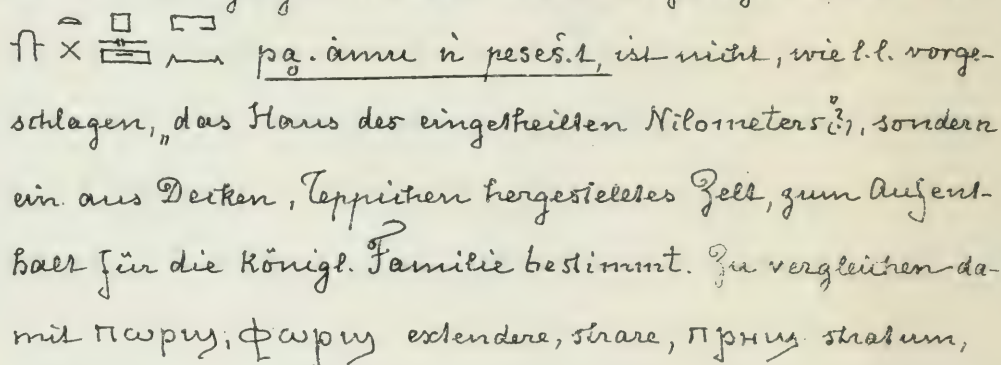 pa. ȧmu n peseš.t, ist nicht, wie l.l. vorge-
schlagen, „das Haus des eingetheilten Nilometers (?)“, sondern
ein aus Decken, Teppichen hergestelltes Zelt, zum Aufent-
halt für die Königl. Familie bestimmt. Zu vergleichen da-
mit ⲡⲱⲣϣ, ⲫⲱⲣϣ extendere, strare, ⲡⲣⲏϣ stratum,